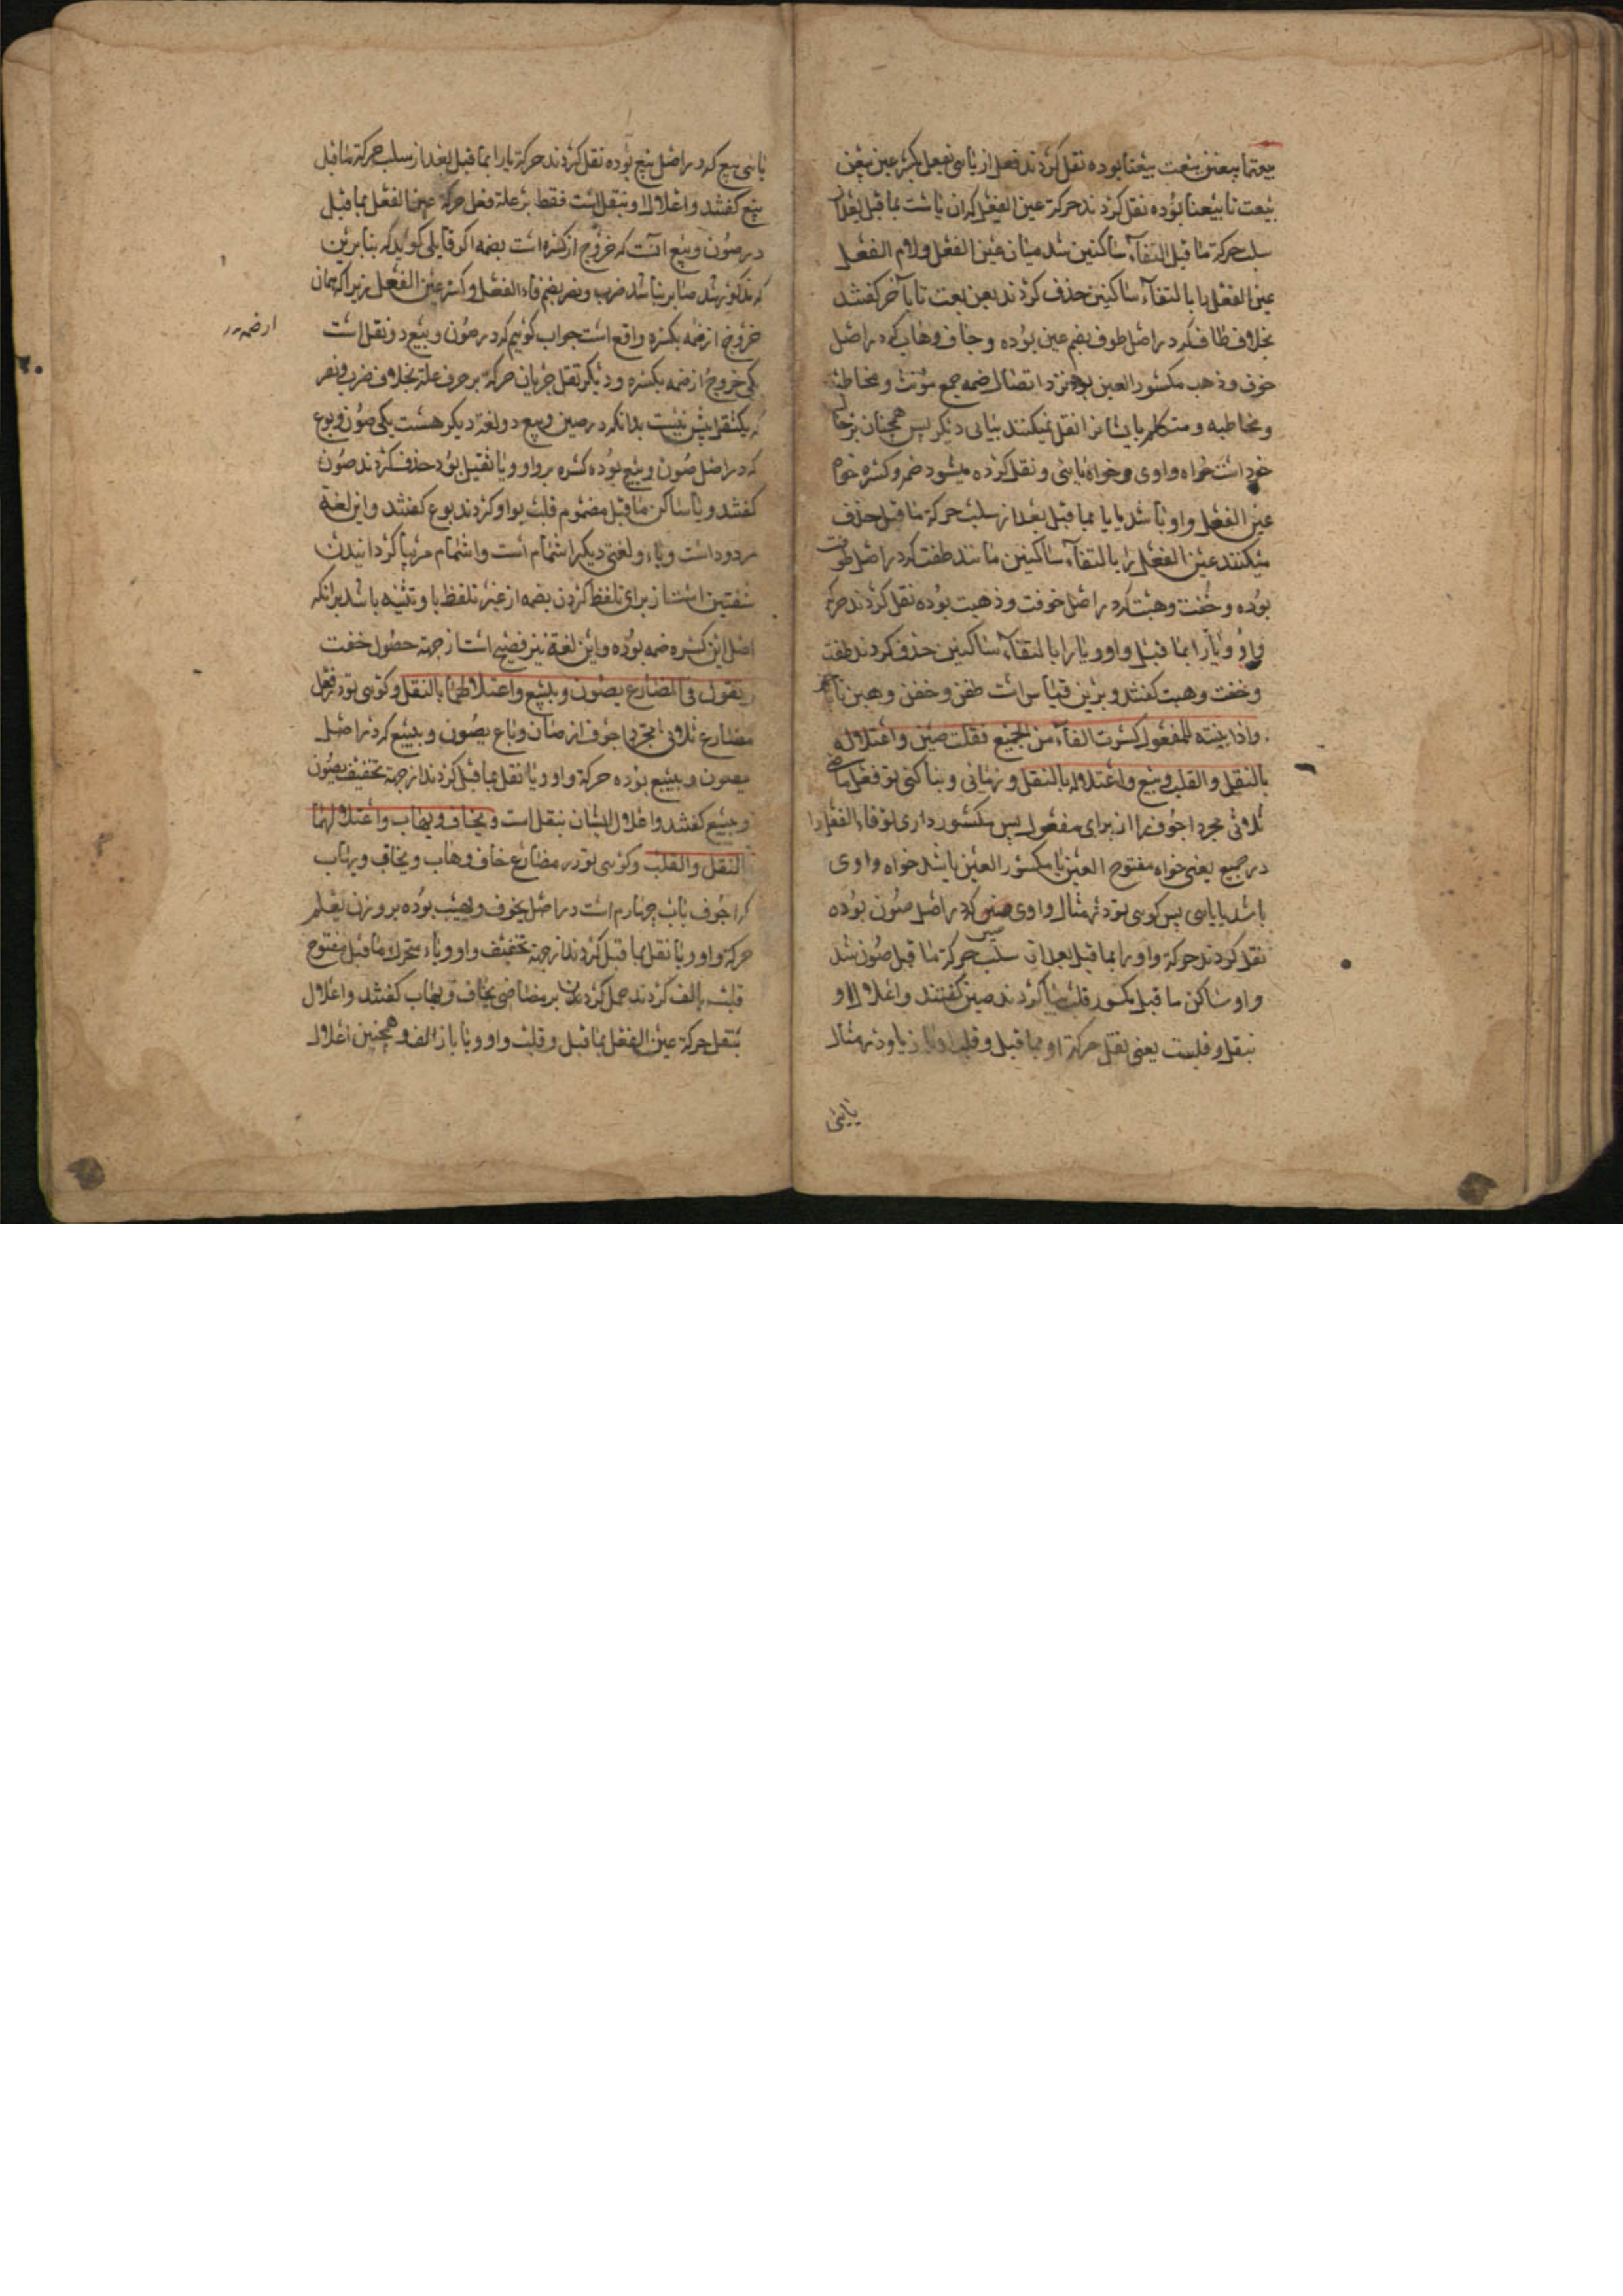 بیعتما بیعتن بیعت بیعنا بوده نقل کردند فعل از یائی بفعل بکسر عین بیعن
بیعت تا بیعنا بوده نقل کردند حرکة عین الفعل که ان یاست بما قبل بعد از
سلب حرکة ما قبل التقآء ساکنین شد میان عین الفعل ولام الفعل
عین الفعل یا بالتقآء ساکنین حذف کردند بعن بعت تا بآخر کفتند
بخلاف طاف که در اصل طوف بضم عین بوده و خاف و هاب که در اصل
خوف و ذهب مکسور العین بوده نزد اتصال ضمه جمع مؤنث و مخاطب
و مخاطبه و متکلم بایشان نقل نمیکنند ببابی دیکر پس همچنان بر حال
خود است خواه واوی و خواه یائی و نقل کرده میشود ضم و کسره
عین الفعل واو باشد یا یا بما قبل بعد از سلب حرکة ما قبل حذف
میکنند عین الفعل را بالتقآء ساکنین مانند طفت که در اصل طوفت
بوده و خفت و هبت که در اصل خوفت و ذهبت بوده نقل کردند حرکة
واو و یا را بما قبل واو و یا را بالتقآء ساکنین حذف کردند طفت
و خفت و هبت کفتند و برین قیاس است طفن و خفن و هبن تا
واذا بنیته للمفعول کسرت الفآء من الجمیع فقلت صین واعتلاله
بالنقل والقلب وبیع واعتلاله بالنقل و زمانی و بنا کنی تو فعل ماضی
ثلاثی مجرد اجوف را از برای مفعول پس مکسور داری تو فاء الفعل را
در جمیع یعنی خواه مفتوح العین یا مکسور العین باشد خواه واوی
باشد یا یایی پس کویی تو در مثال واوی صین که در اصل صُوِن بوده
نقل کردند حرکة واو را بما قبل بعد از سلب حرکة ما قبل صُون شد
واو ساکن ما قبل مکسور قلب بیا کردند صین کفتند واعلال او
بنقل و قلبست یعنی نقل حرکة او بما قبل و قلب او بیا و در مثال
یایی
یائی بیع که در اصل بیع بوده نقل کردند حرکة یا را بما قبل بعد از سلب حرکة ما قبل
بیع کفتند واعلال او بنقل است فقط بر علة نقل حرکة عین الفعل بما قبل
در صُون و بیع انست که خروج از کسره است بضمه اکر قایلی کوید که بنا برین
که مذکور شد بنا بر باشد ضرب و نصر بضم فاء الفعل و کسر عین الفعل زیرا که همان
خروج از ضمه بکسره واقع است جواب کوئیم که در صُون و بیع دو نقل است
یکی خروج از ضمه بکسره و دیکر ثقل جریان حرکة بر حرف علة بخلاف ضرب و نصر
که یکثقل بیش نیست بدانکه در صین و بیع دو لغة دیکر هست یکی صُون و بوع
که در اصل صُون و بیع بوده کسره بر واو و یا ثقیل بود حذف کردند صُون
کفتند و یا ساکن ما قبل مضموم قلب بواو کردند بوع کفتند و این لغة
مردود است و لغتی دیکر اشمام است و اشمام مهیا کردانیدن
شفتین است از برای تلفظ کردن بضمه از غیر تلفظ با و تنبیه باشد برانکه
اصل این کسره ضمه بوده و این لغة نیز فصیح است از جهة حصول خفت
و تقول فی المضارع یصُون و یبیع واعتلالهما بالنقل و کویی تو در فعل
مضارع ثلاثی مجرد اجوف از صان و باع یصُون و یبیع که در اصل
یصون و یبیع بوده حرکة واو و یا نقل بما قبل کردند از جهة تخفیف یصُون
و یبیع کفتند و اعلال ایشان بنقل است و یخاف و یهاب واعتلالهما
بالنقل والقلب و کویی تو در مضارع خاف و هاب و یخاف و یهاب
که اجوف باب چهارم است در اصل یخوف و یهیب بوده بر وزن یعلم
حرکة واو و یا نقل بما قبل کردند از جهة تخفیف واو و یاء متحرک ما قبل مفتوح
قلب بالف کردند حمل کردند بر ماضی یخاف و یهاب کفتند و اعلال
بنقل حرکة عین الفعل بما قبل و قلب واو و یا باز الف و همچنین اعلال
از ضمه